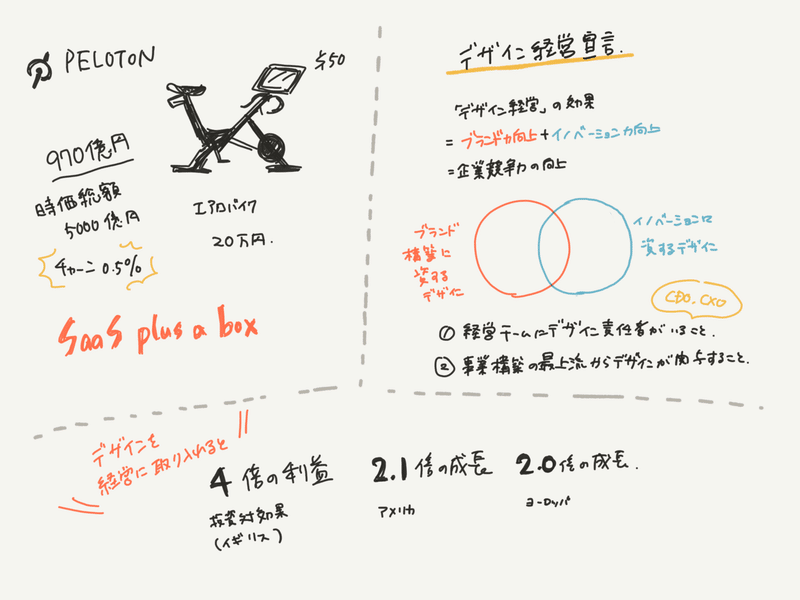 PELOTON
$50
970億円
時価総額
5000億円
チャーン 0.5%
エアロバイク
20万円.
SaaS plus a box
デザイン経営宣言.
「デザイン経営」の効果
= ブランド力向上 + イノベーション力向上
= 企業競争力の向上
ブランド
構築に
資する
デザイン
イノベーションに
資するデザイン
CDO, CXO
① 経営チームにデザイン責任者がいること.
② 事業構築の最上流からデザインが関与すること.
デザインを
経営に取り入れると
4倍の利益
投資対効果
(イギリス)
2.1倍の成長
アメリカ
2.0倍の成長.
ヨーロッパ